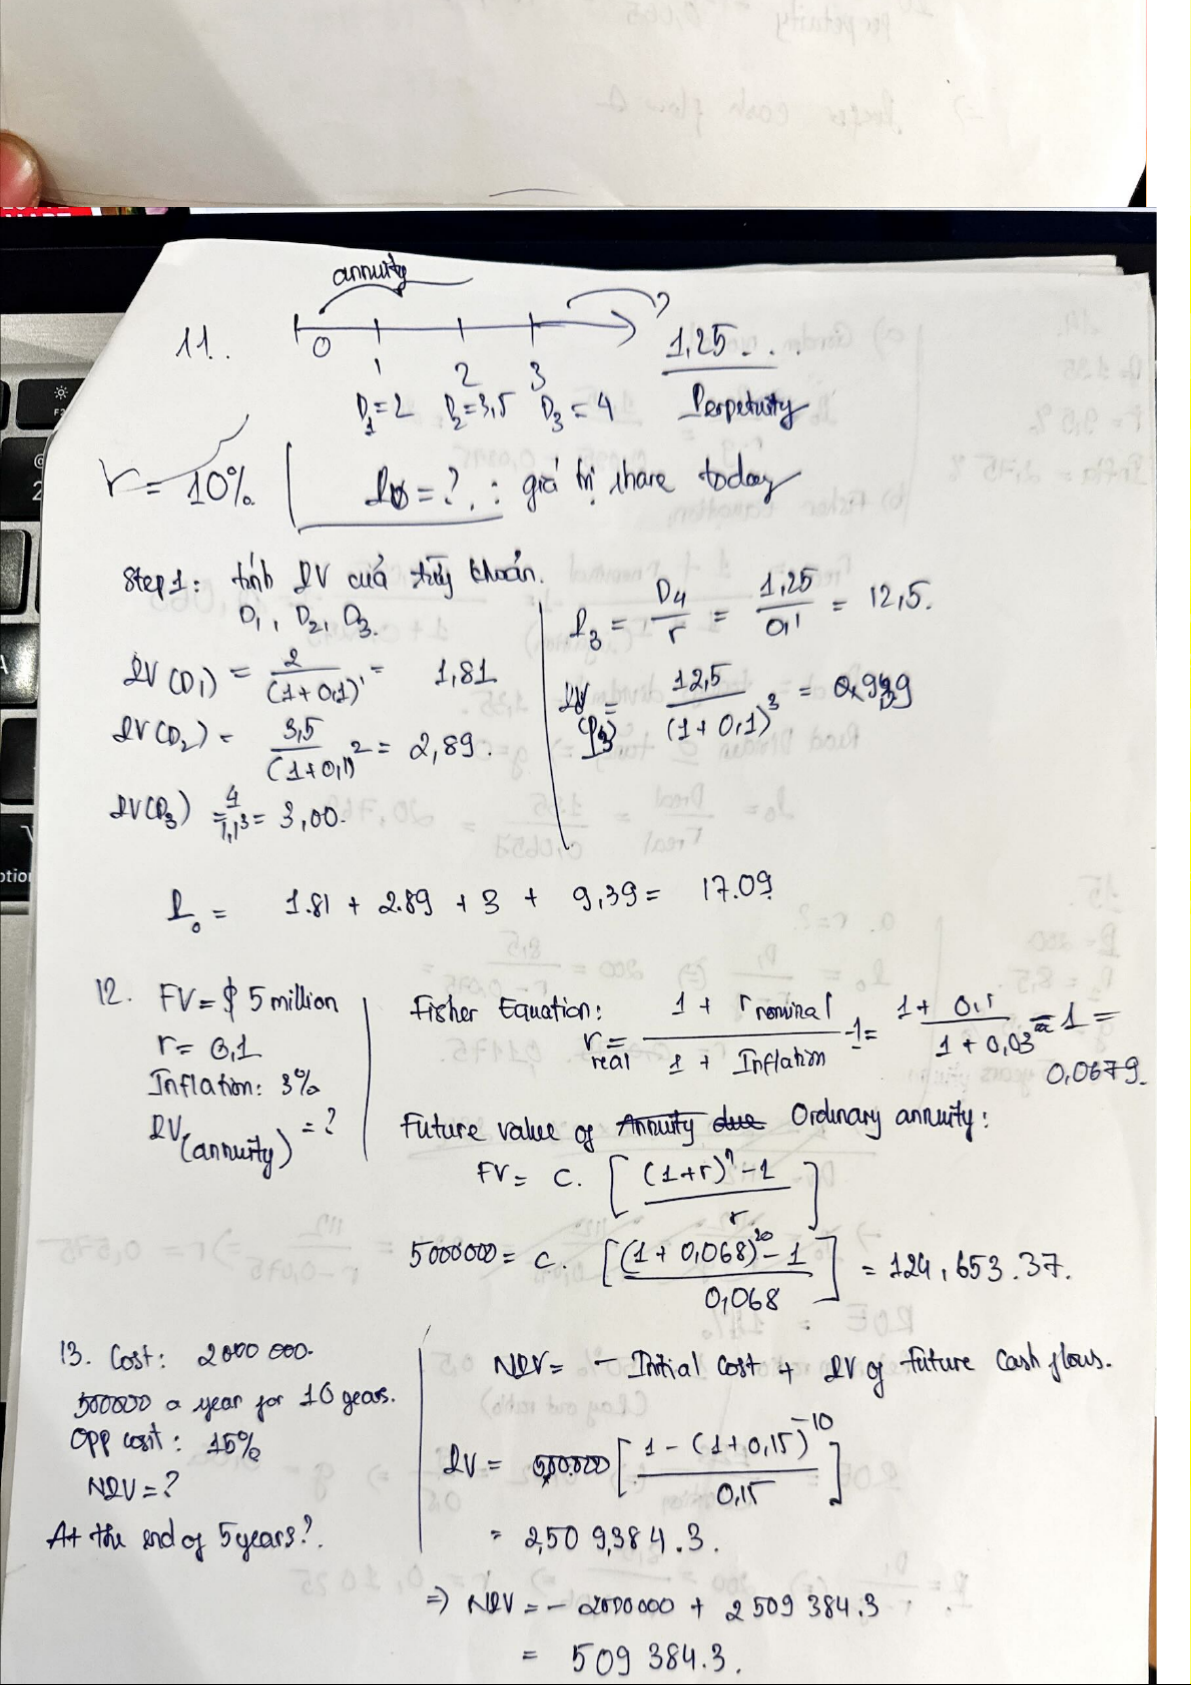 annuity
11.
0 1 2 3
1,25...
D1=2 D2=3,5 D3=4 Perpetuity
r = 10%
P0=? : giá trị share today
Step 1: tính PV của từng khoản.
D1, D2, D3.
PV(D1) = 2/(1+0,1)^1 = 1,81
PV(D2) = 3,5/(1+0,1)^2 = 2,89.
PV(D3) = 4/1,1^3 = 3,00.
P3 = D4/r = 1,25/0,1 = 12,5.
PV(P3) = 12,5/(1+0,1)^3 =
P0 = 1.81 + 2.89 + 3 + 9,39 = 17.09
12. FV = $ 5 million
r = 0,1
Inflation: 3%
PV(annuity) = ?
Fisher Equation:
r real = (1 + r nominal)/(1 + Inflation) - 1 = (1 + 0,1)/(1 + 0,03) - 1 =
0,0679.
Future value of Annuity due Ordinary annuity:
FV = C. [((1+r)^n - 1)/r]
5000000 = C. [((1 + 0,068)^30 - 1)/0,068] = 124,653.37.
13. Cost: 2000 000.
500000 a year for 10 years.
Opp cost: 15%
NPV = ?
At the end of 5 years?.
NPV = - Initial cost + PV of future cash flows.
PV = 500.000 [(1 - (1+0,15)^-10)/0,15]
= 2,509,384.3.
=> NPV = - 2000000 + 2509384.3
= 509 384.3.